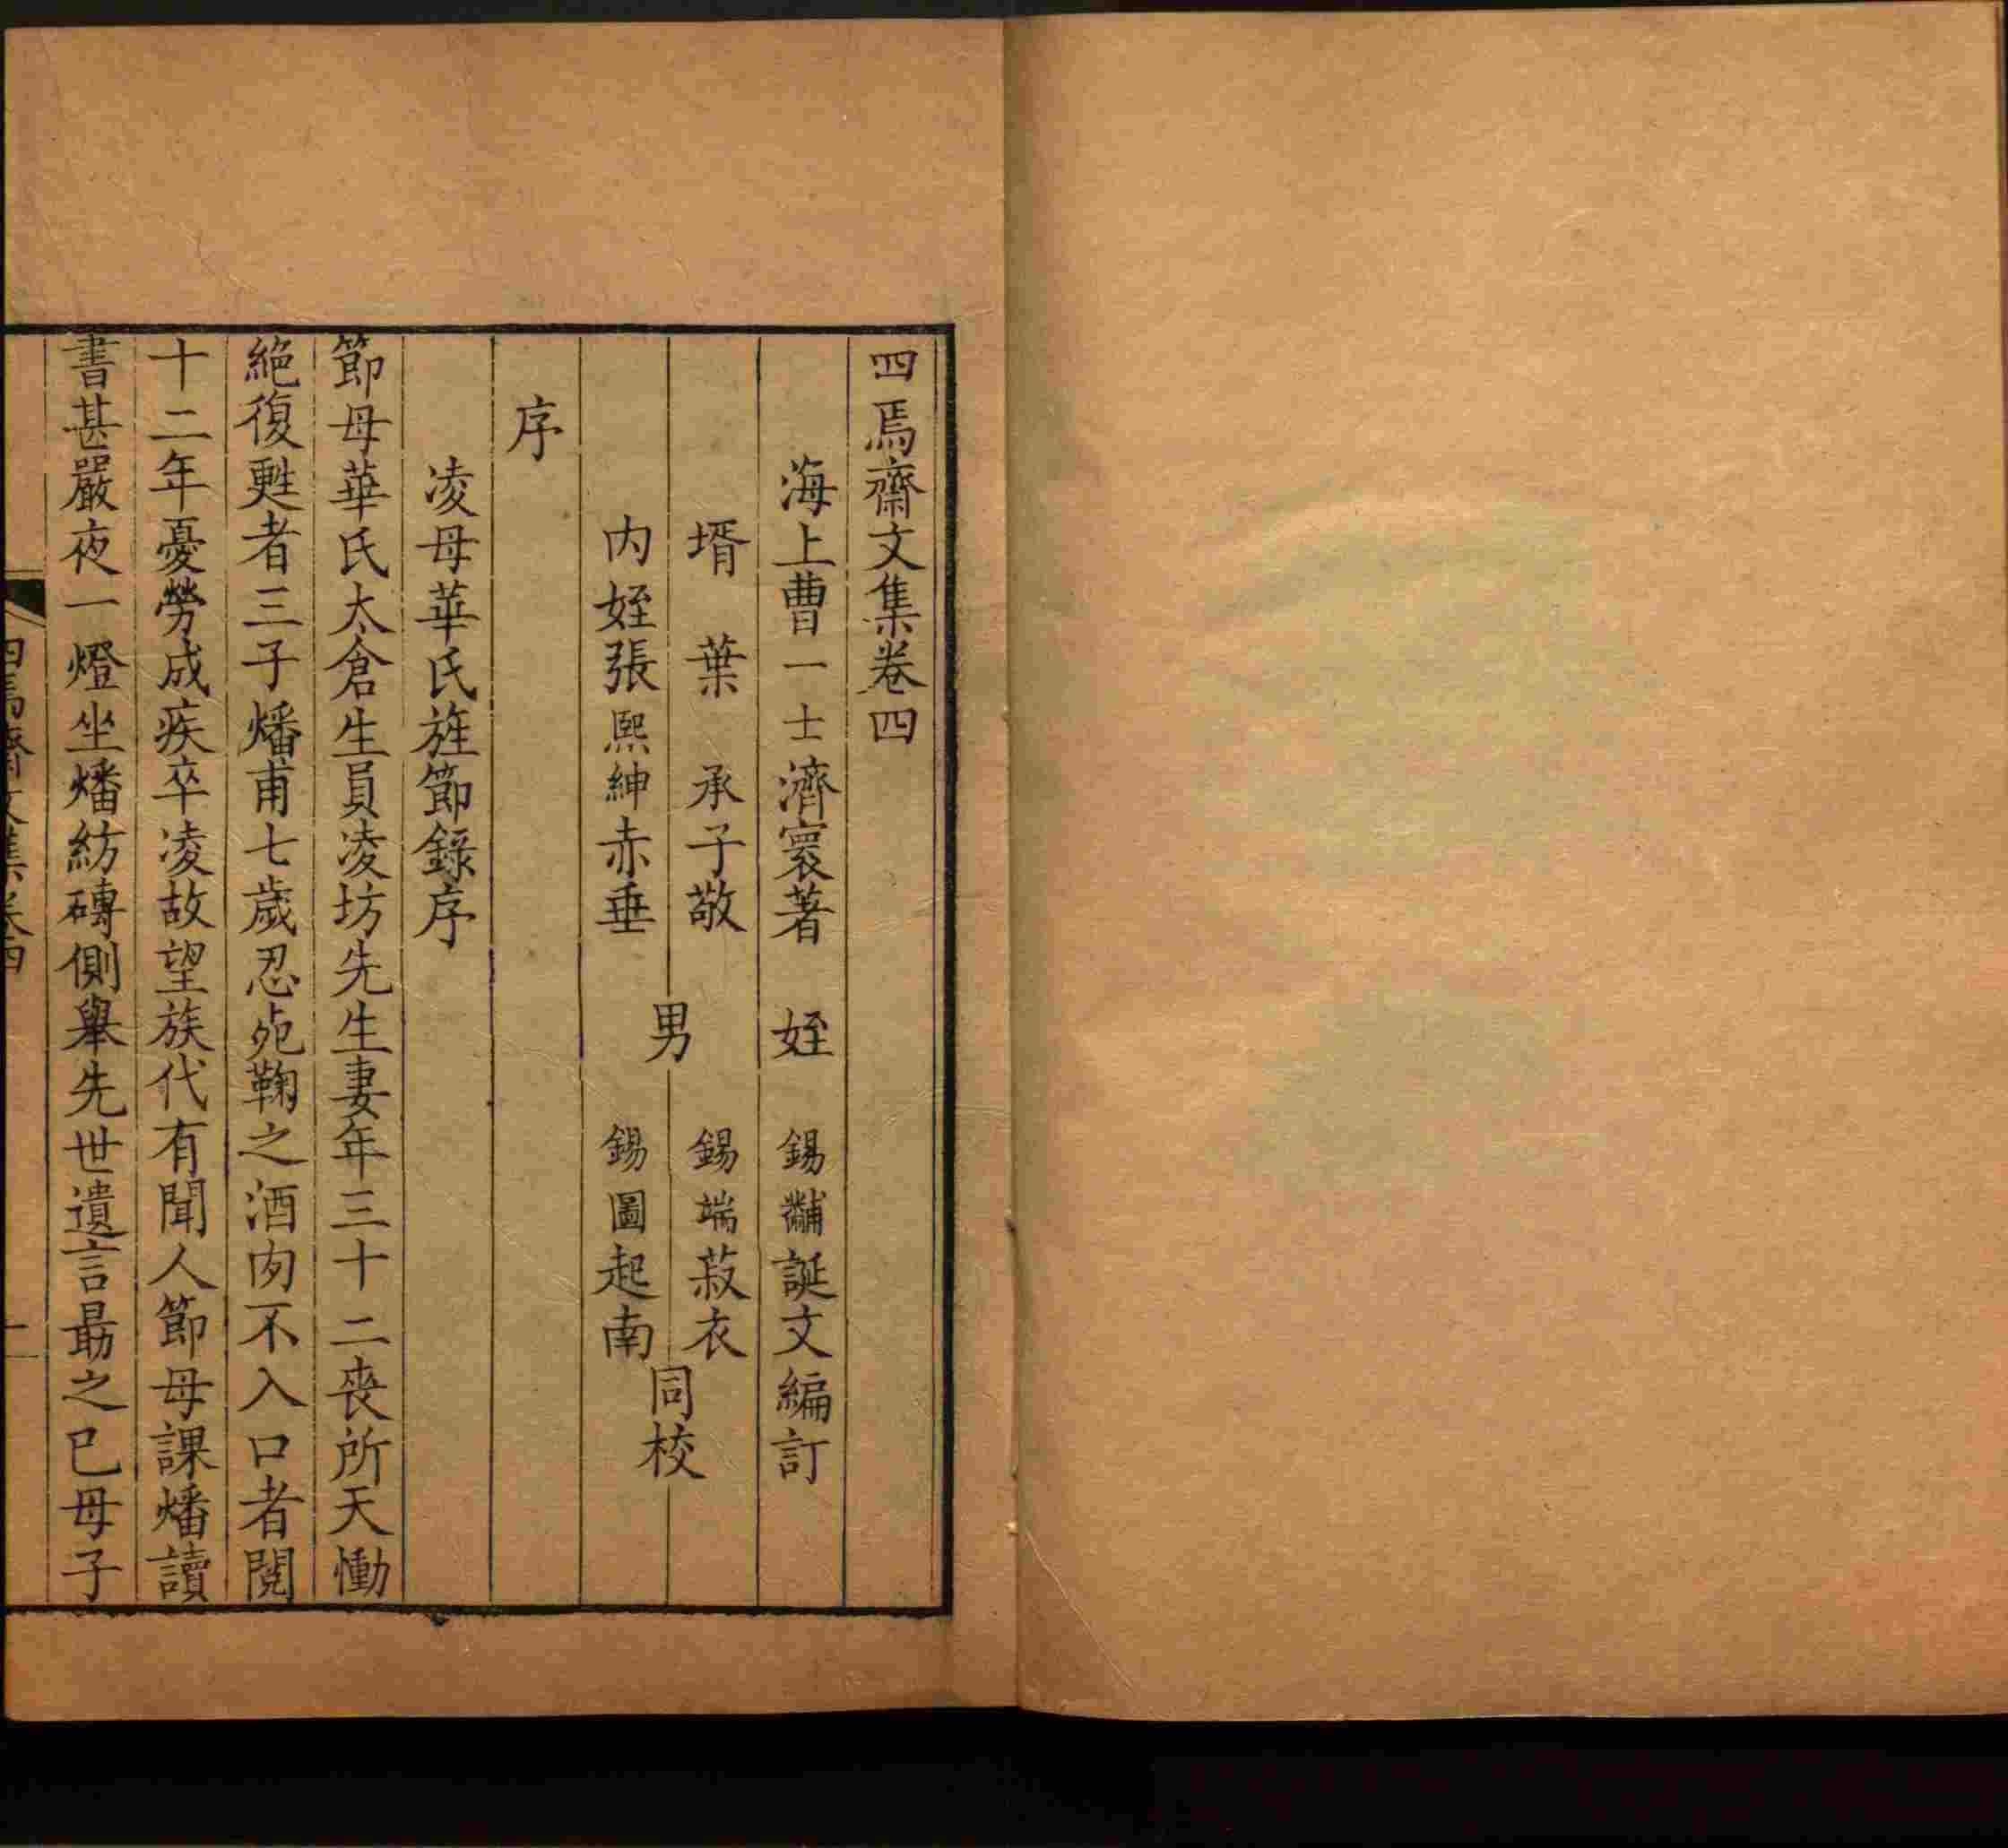 四焉齋文集卷四
海上曹一士濟寰著 姪 錫黼誕文編訂
壻 葉 承子敬 男 錫端菽衣 同校
内姪張熙紳赤垂 錫圖起南
序
凌母華氏旌節錄序
節母華氏太倉生員凌坊先生妻年三十二喪所天慟
絶復甦者三子燔甫七歲忍死鞠之酒肉不入口者閱
十二年憂勞成疾卒凌故望族代有聞人節母課燔讀
書甚嚴夜一燈坐燔紡磚側舉先世遺言最之已母子
四焉齋文集卷四 一